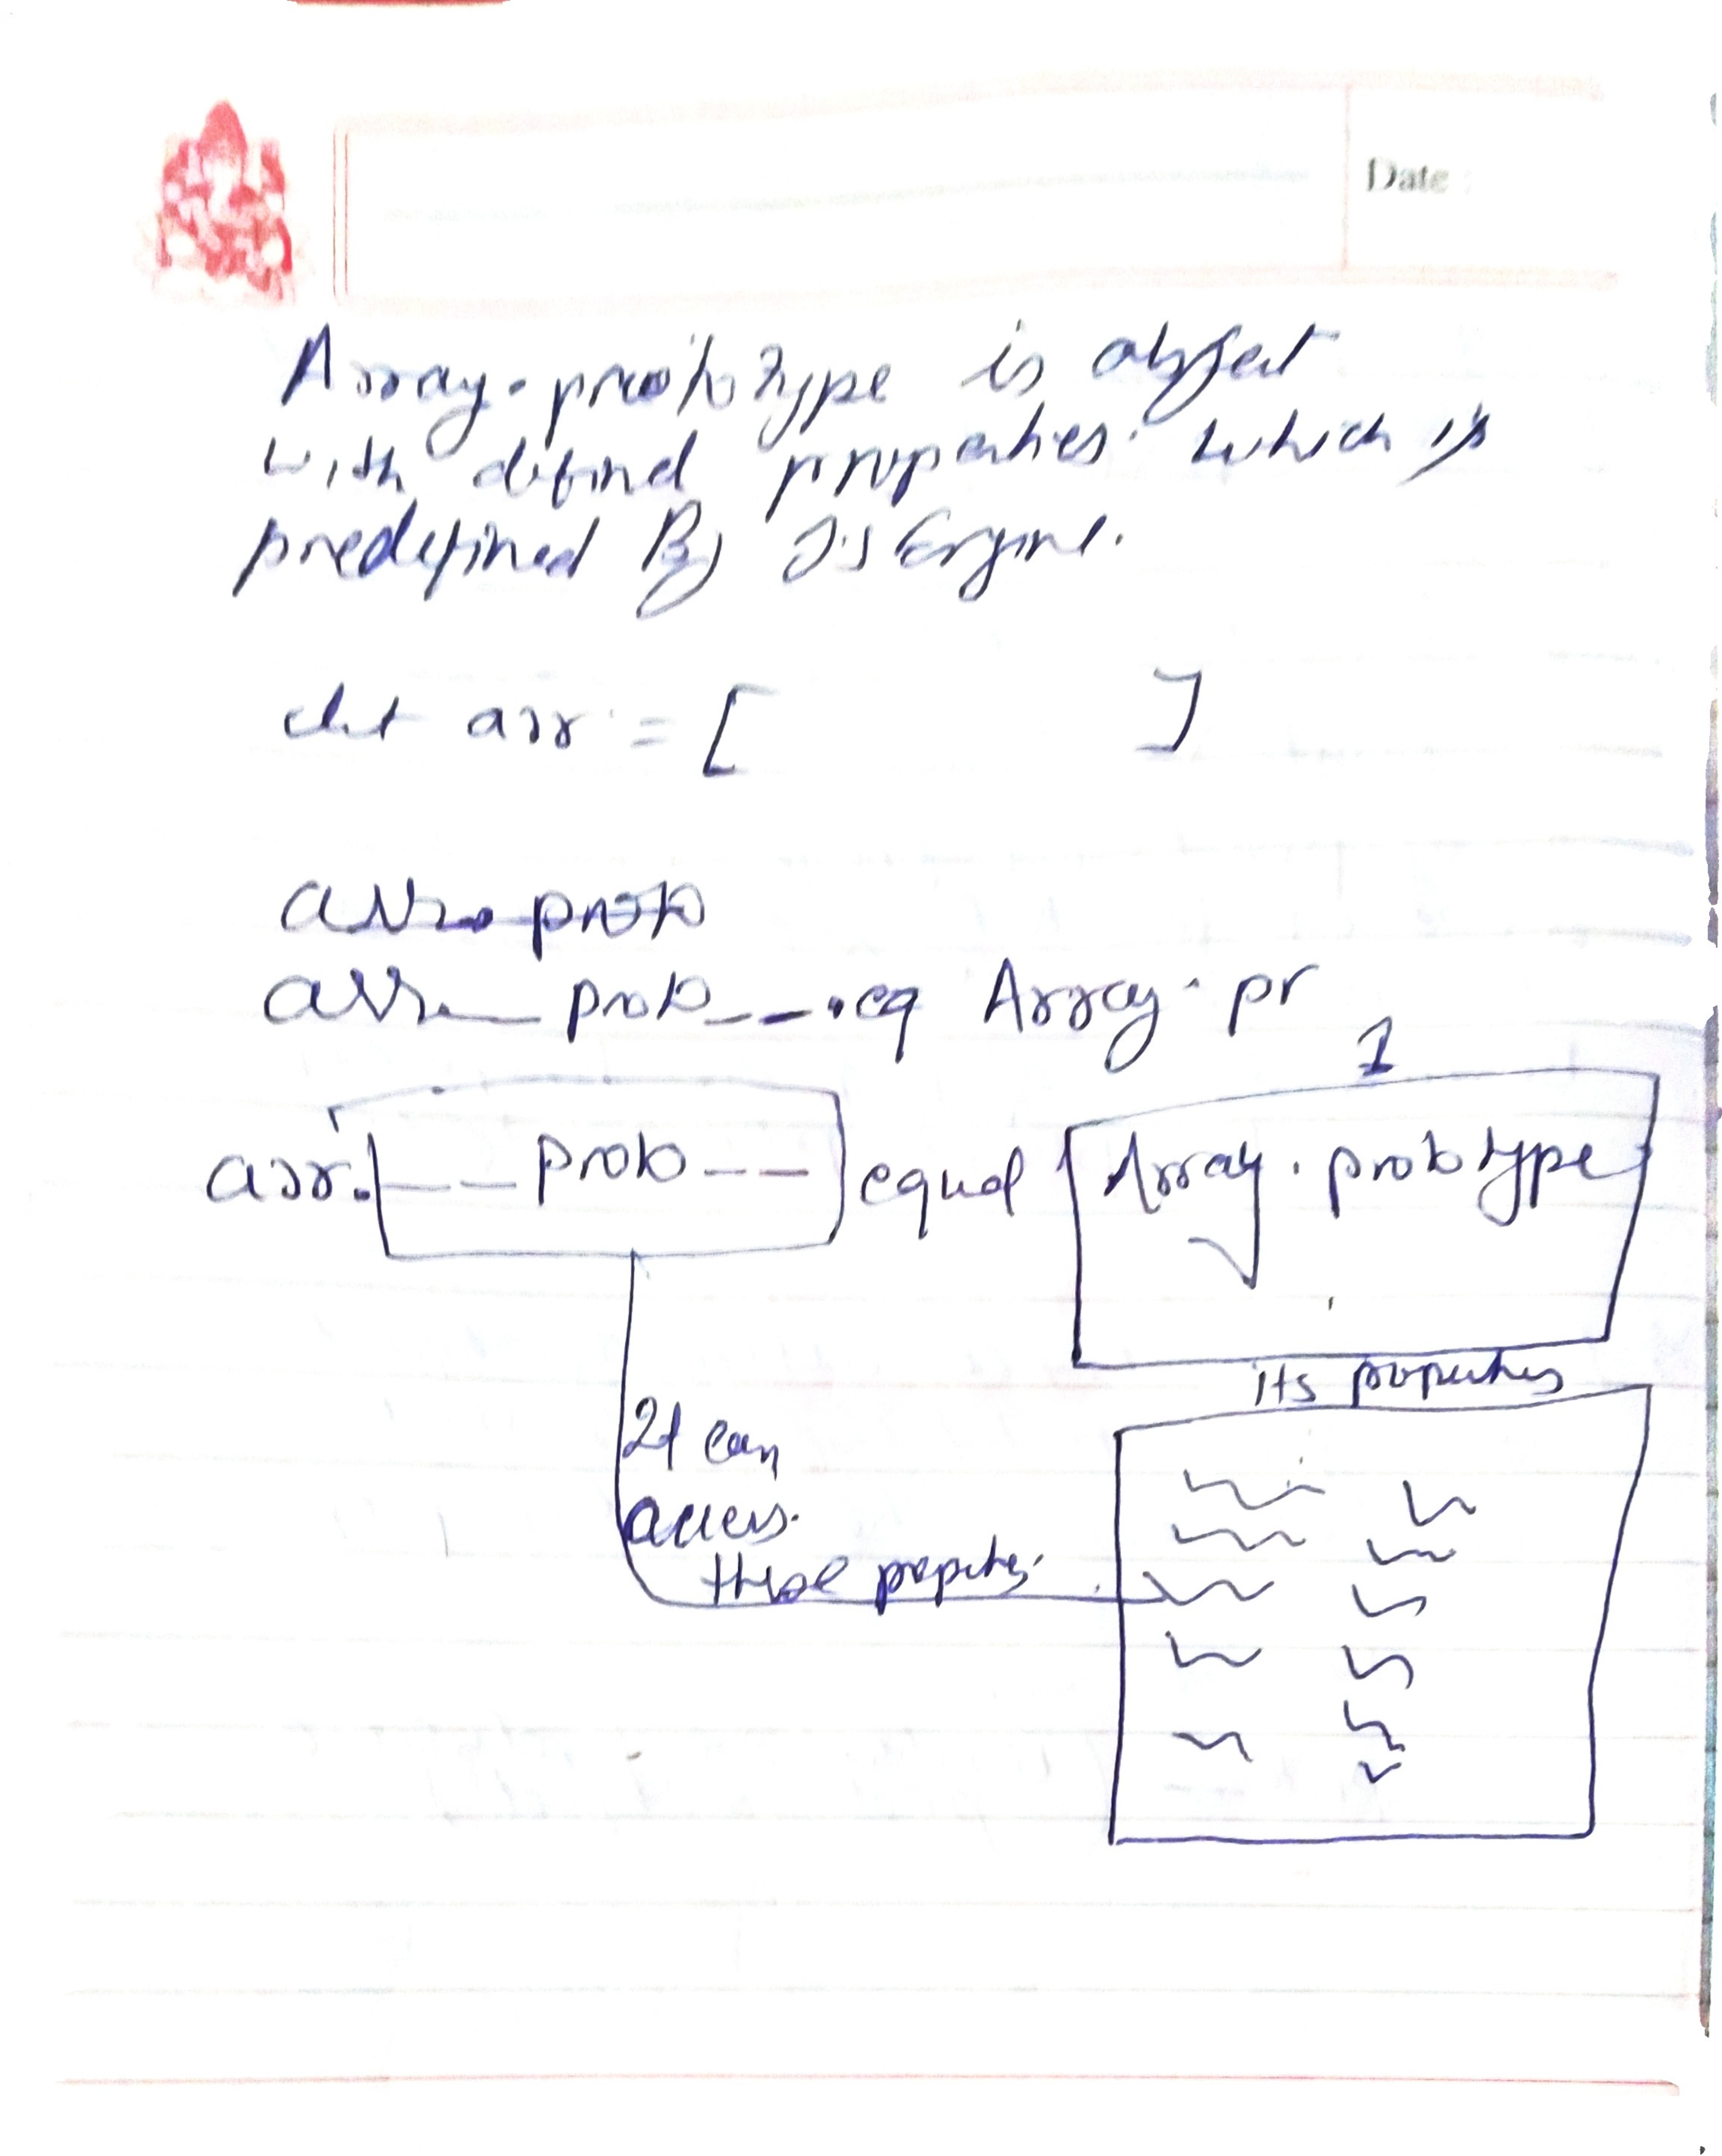 Date :
Array.prototype is object
with defind properties. which is
predefined By JS Engine.
let arr = [ ]
arr. proto
arr__proto__.eq Array.pr
1
arr.__proto__ equal Array.prototype
its properties
It can
access.
these propertes.